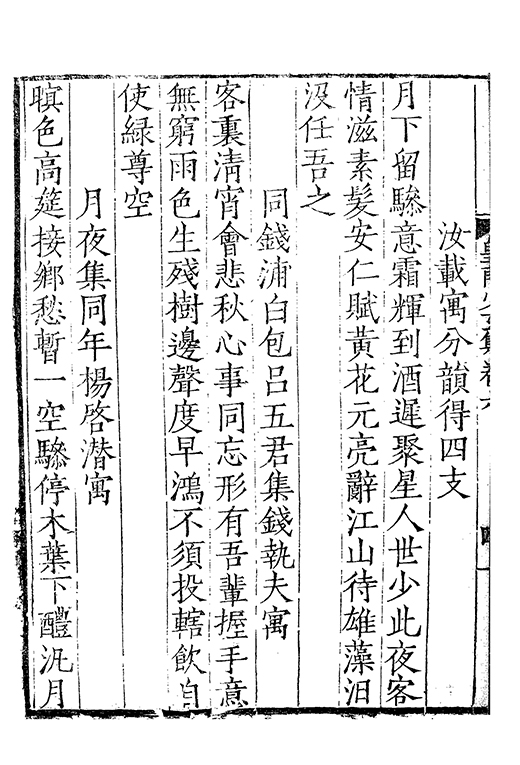 汝載寓分韻得四支
月下留驂意霜輝到酒遲聚星人世少此夜客
情滋素髮安仁賦黃花元亮辭江山待雄藻汨
沒任吾之
同錢浦白包呂五君集錢執夫寓
客裏淸宵會悲秋心事同忘形有吾輩握手意
無窮雨色生殘樹邊聲度早鴻不須投轄飲自
使綠尊空
月夜集同年楊啓潛寓
暝色高筵接鄉愁暫一空驂停木葉下醴汎月